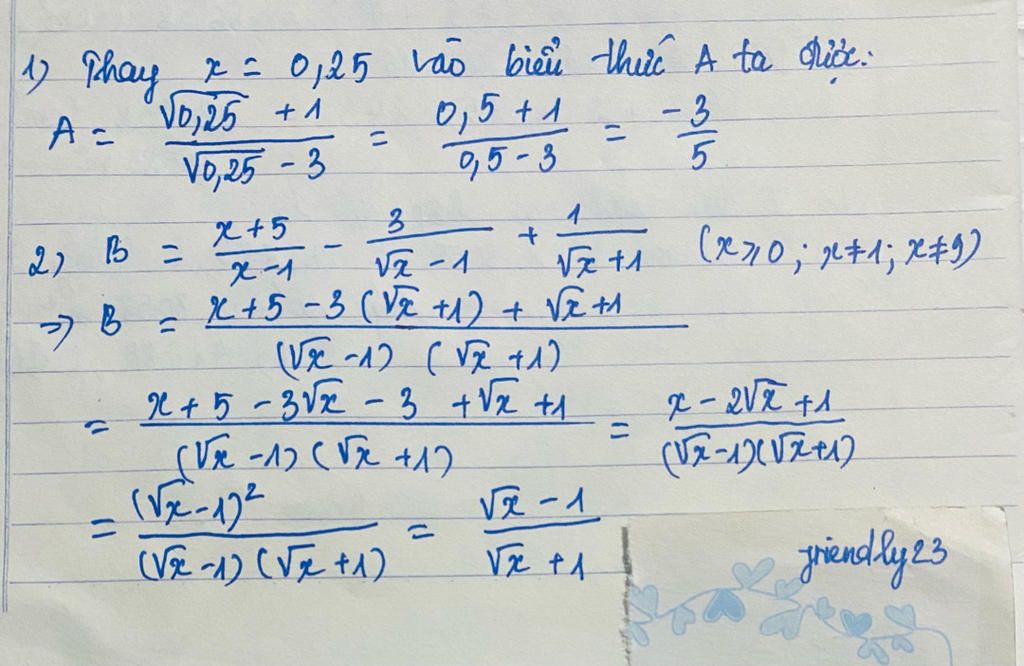 1) Thay x = 0,25 vào biểu thức A ta được:
A = (√0,25 + 1)/(√0,25 - 3) = (0,5 + 1)/(0,5 - 3) = -3/5
2) B = (x+5)/(x-1) - 3/(√x - 1) + 1/(√x + 1) (x ⩾ 0; x ≠ 1; x ≠ 9)
=> B = (x + 5 - 3(√x + 1) + √x + 1)/((√x - 1)(√x + 1))
= (x + 5 - 3√x - 3 + √x + 1)/((√x - 1)(√x + 1)) = (x - 2√x + 1)/((√x - 1)(√x + 1))
= (√x - 1)²/((√x - 1)(√x + 1)) = (√x - 1)/(√x + 1)
friendly23